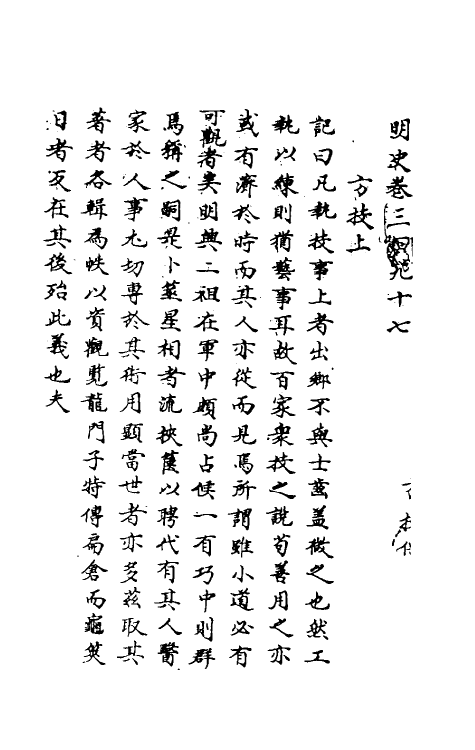 明史卷三九十七
方技上
記曰凡執技事上者出鄉不與士齒蓋微之也然工
執以練則猶藝事耳故百家衆技之說苟善用之亦
或有濟於時而其人亦從而見焉所謂雖小道必有
可觀者矣明興二祖在軍中頗尚占候一有巧中則群
焉稱之嗣是卜筮星相者流挾舊以聘代有其人醫
家於人事尤切專於其術用顯當世者亦多茲取其
著者各輯為帙以資觀覽龍門子特傳扁倉而龜筴
日者反在其後殆此義也夫